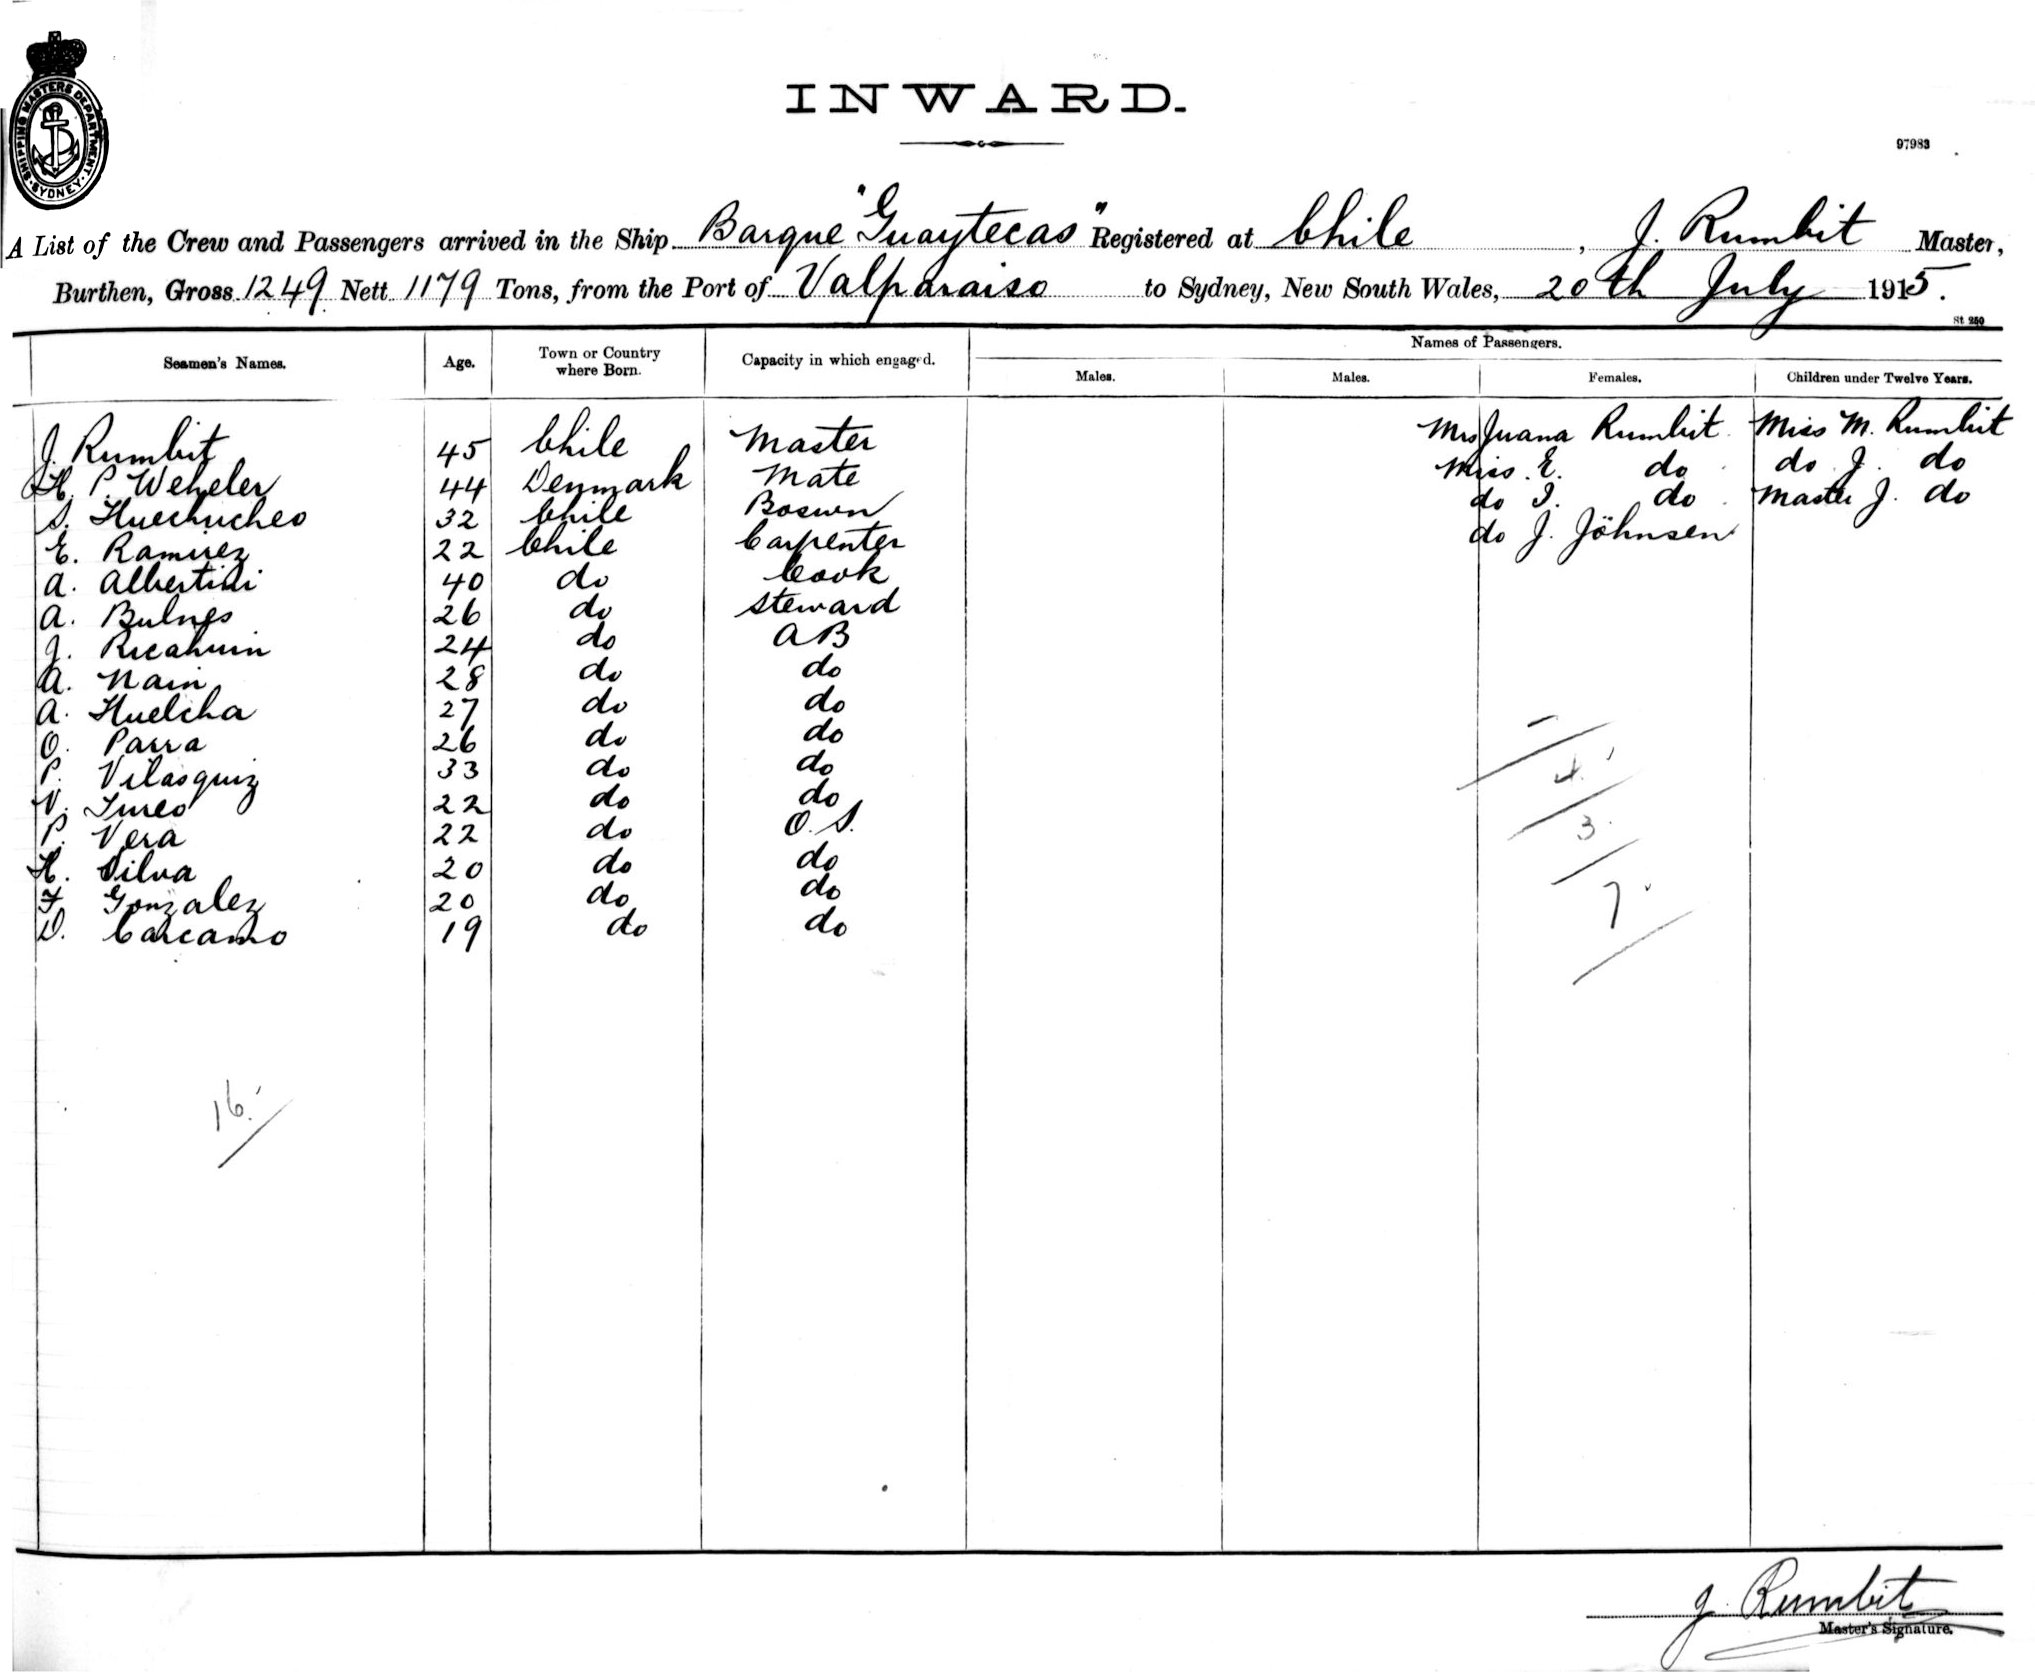 SHIPPING MASTERS DEPARTMENT. SYDNEY.
INWARD.
97983
A List of the Crew and Passengers arrived in the Ship Barque "Guaytecas" Registered at Chile, J. Rumbit Master,
Burthen, Gross 1249 Nett 1179 Tons, from the Port of Valparaiso to Sydney, New South Wales, 20th July 1915.
St 250
Seamen's Names. Age. Town or Country where Born. Capacity in which engaged. Names of Passengers.
Males. Males. Females. Children under Twelve Years.
J. Rumbit 45 Chile Master Mrs Juana Rumbit Miss M. Rumbit
H. P. Weheler 44 Denmark Mate Miss. E. do do J. do
S. Huechucheo 32 Chile Boswn do I. do Master J. do
E. Ramirez 22 Chile Carpenter do J. Jöhnsen
A. Albertini 40 do Cook
A. Bulnes 26 do Steward
J. Ricahuin 24 do AB
A. Nain 28 do do
A. Huelcha 27 do do
O. Parra 26 do do
P. Vilasquiz 33 do do
V. 22 do do
P. Vera 22 do O.S.
H. Silva 20 do do
F. Gonzalez 20 do do
D. Carcamo 19 do do
4.
3.
7.
16.
J. Rumbit
Master's Signature.